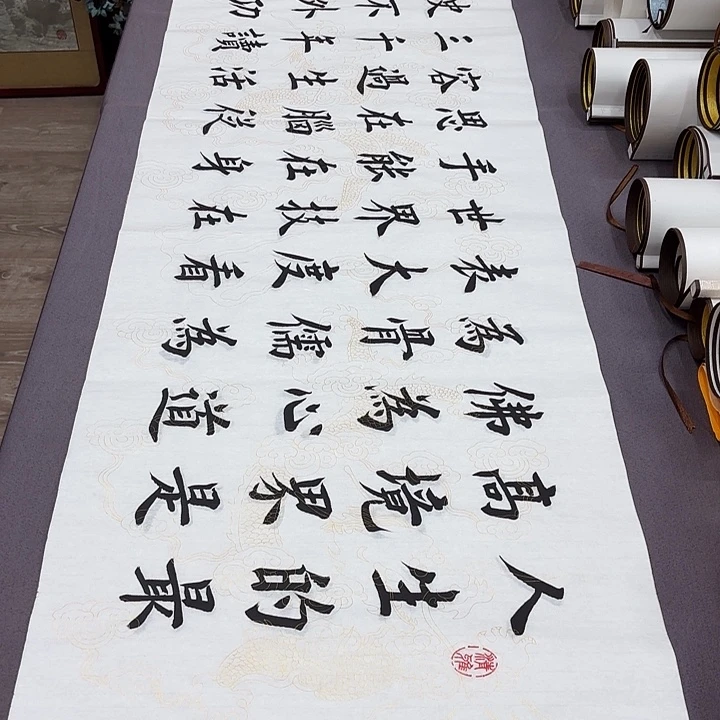 人生的最
高境界是
佛為心道
為骨儒為
表大度看
世界技在
手能在身
思在腦從
容過生活
三千年讀
不外